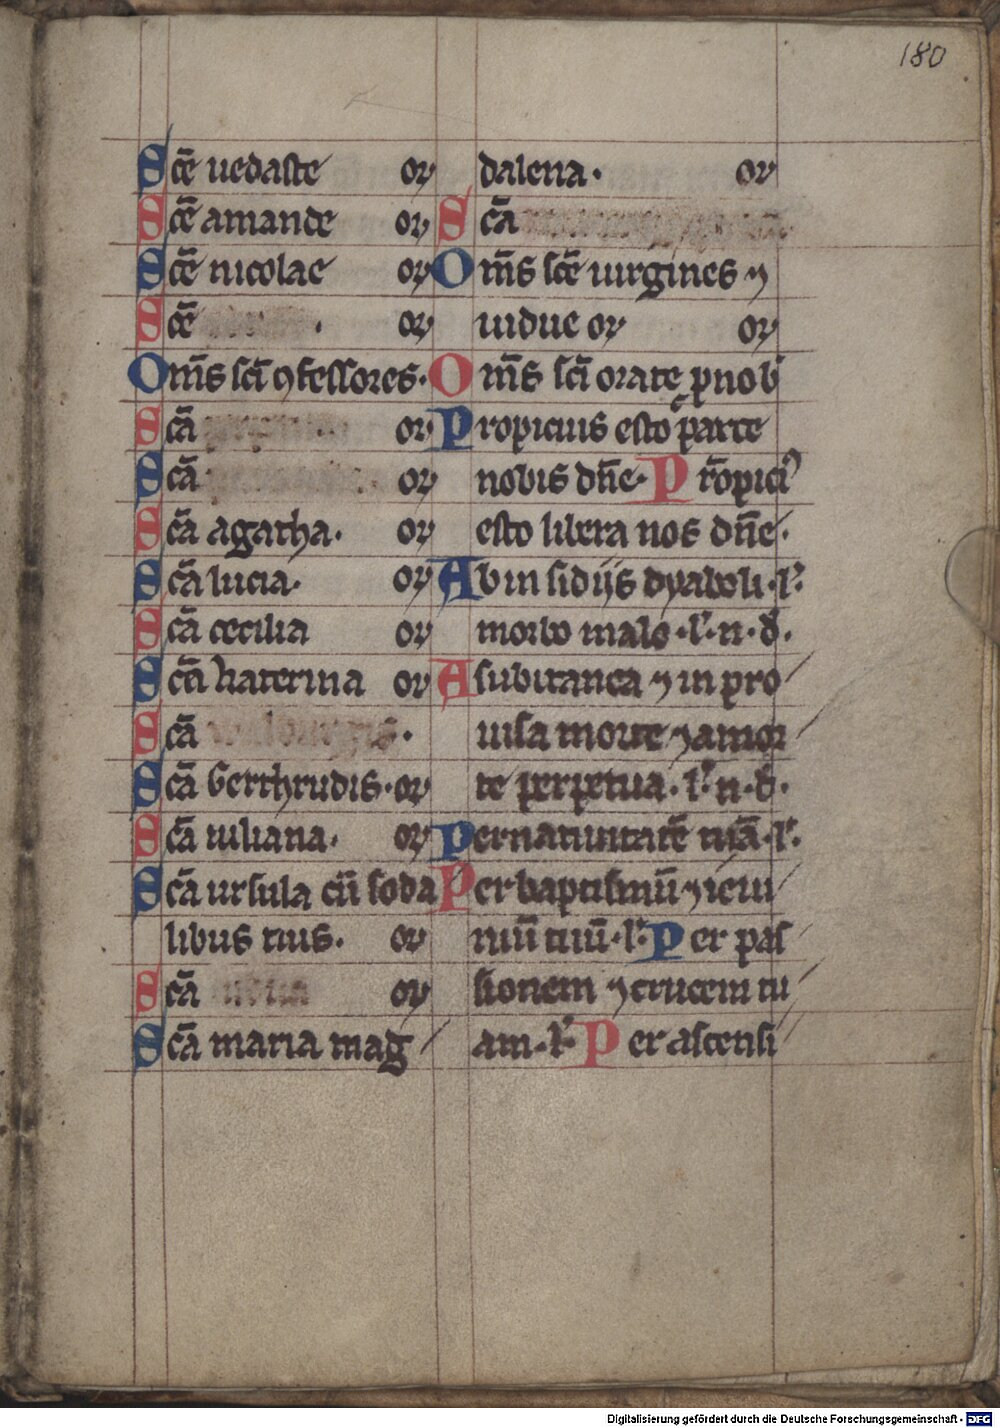 180
Scē uedaste or
Scē amande or
Scē nicolae or
Scē or
Om̄s scī ꝯfessores·
Scā or
Scā or
Scā agatha· or
Scā lucia· or
Scā cecilia or
Scā katerina or
Scā walburgis·
Scā Gerthrudis· or
Scā iuliana· or
Scā ursula cū soda
libus tuis· or
Scā or
Scā maria mag
dalena· or
Scā
Om̄s scē uirgines ⁊
uidue or or
Om̄s scī orate ꝓ nob
Propicius esto parce
nobis dn̄e· Propici
esto libera nos dn̄e·
Ab insidijs dyaboli·l·
morbo malo·l·n·d·
A subitanea ⁊ inpro
uisa morte ⁊ a mor
te perpetua·l·n·d·
Per natiuitatē tuā·l·
Per baptismū ⁊ ieiu
niū tuū·l· Per pas
sionem ⁊ crucem tu
am·l· Per ascensi
Digitalisierung gefördert durch die Deutsche Forschungsgemeinschaft - DFG